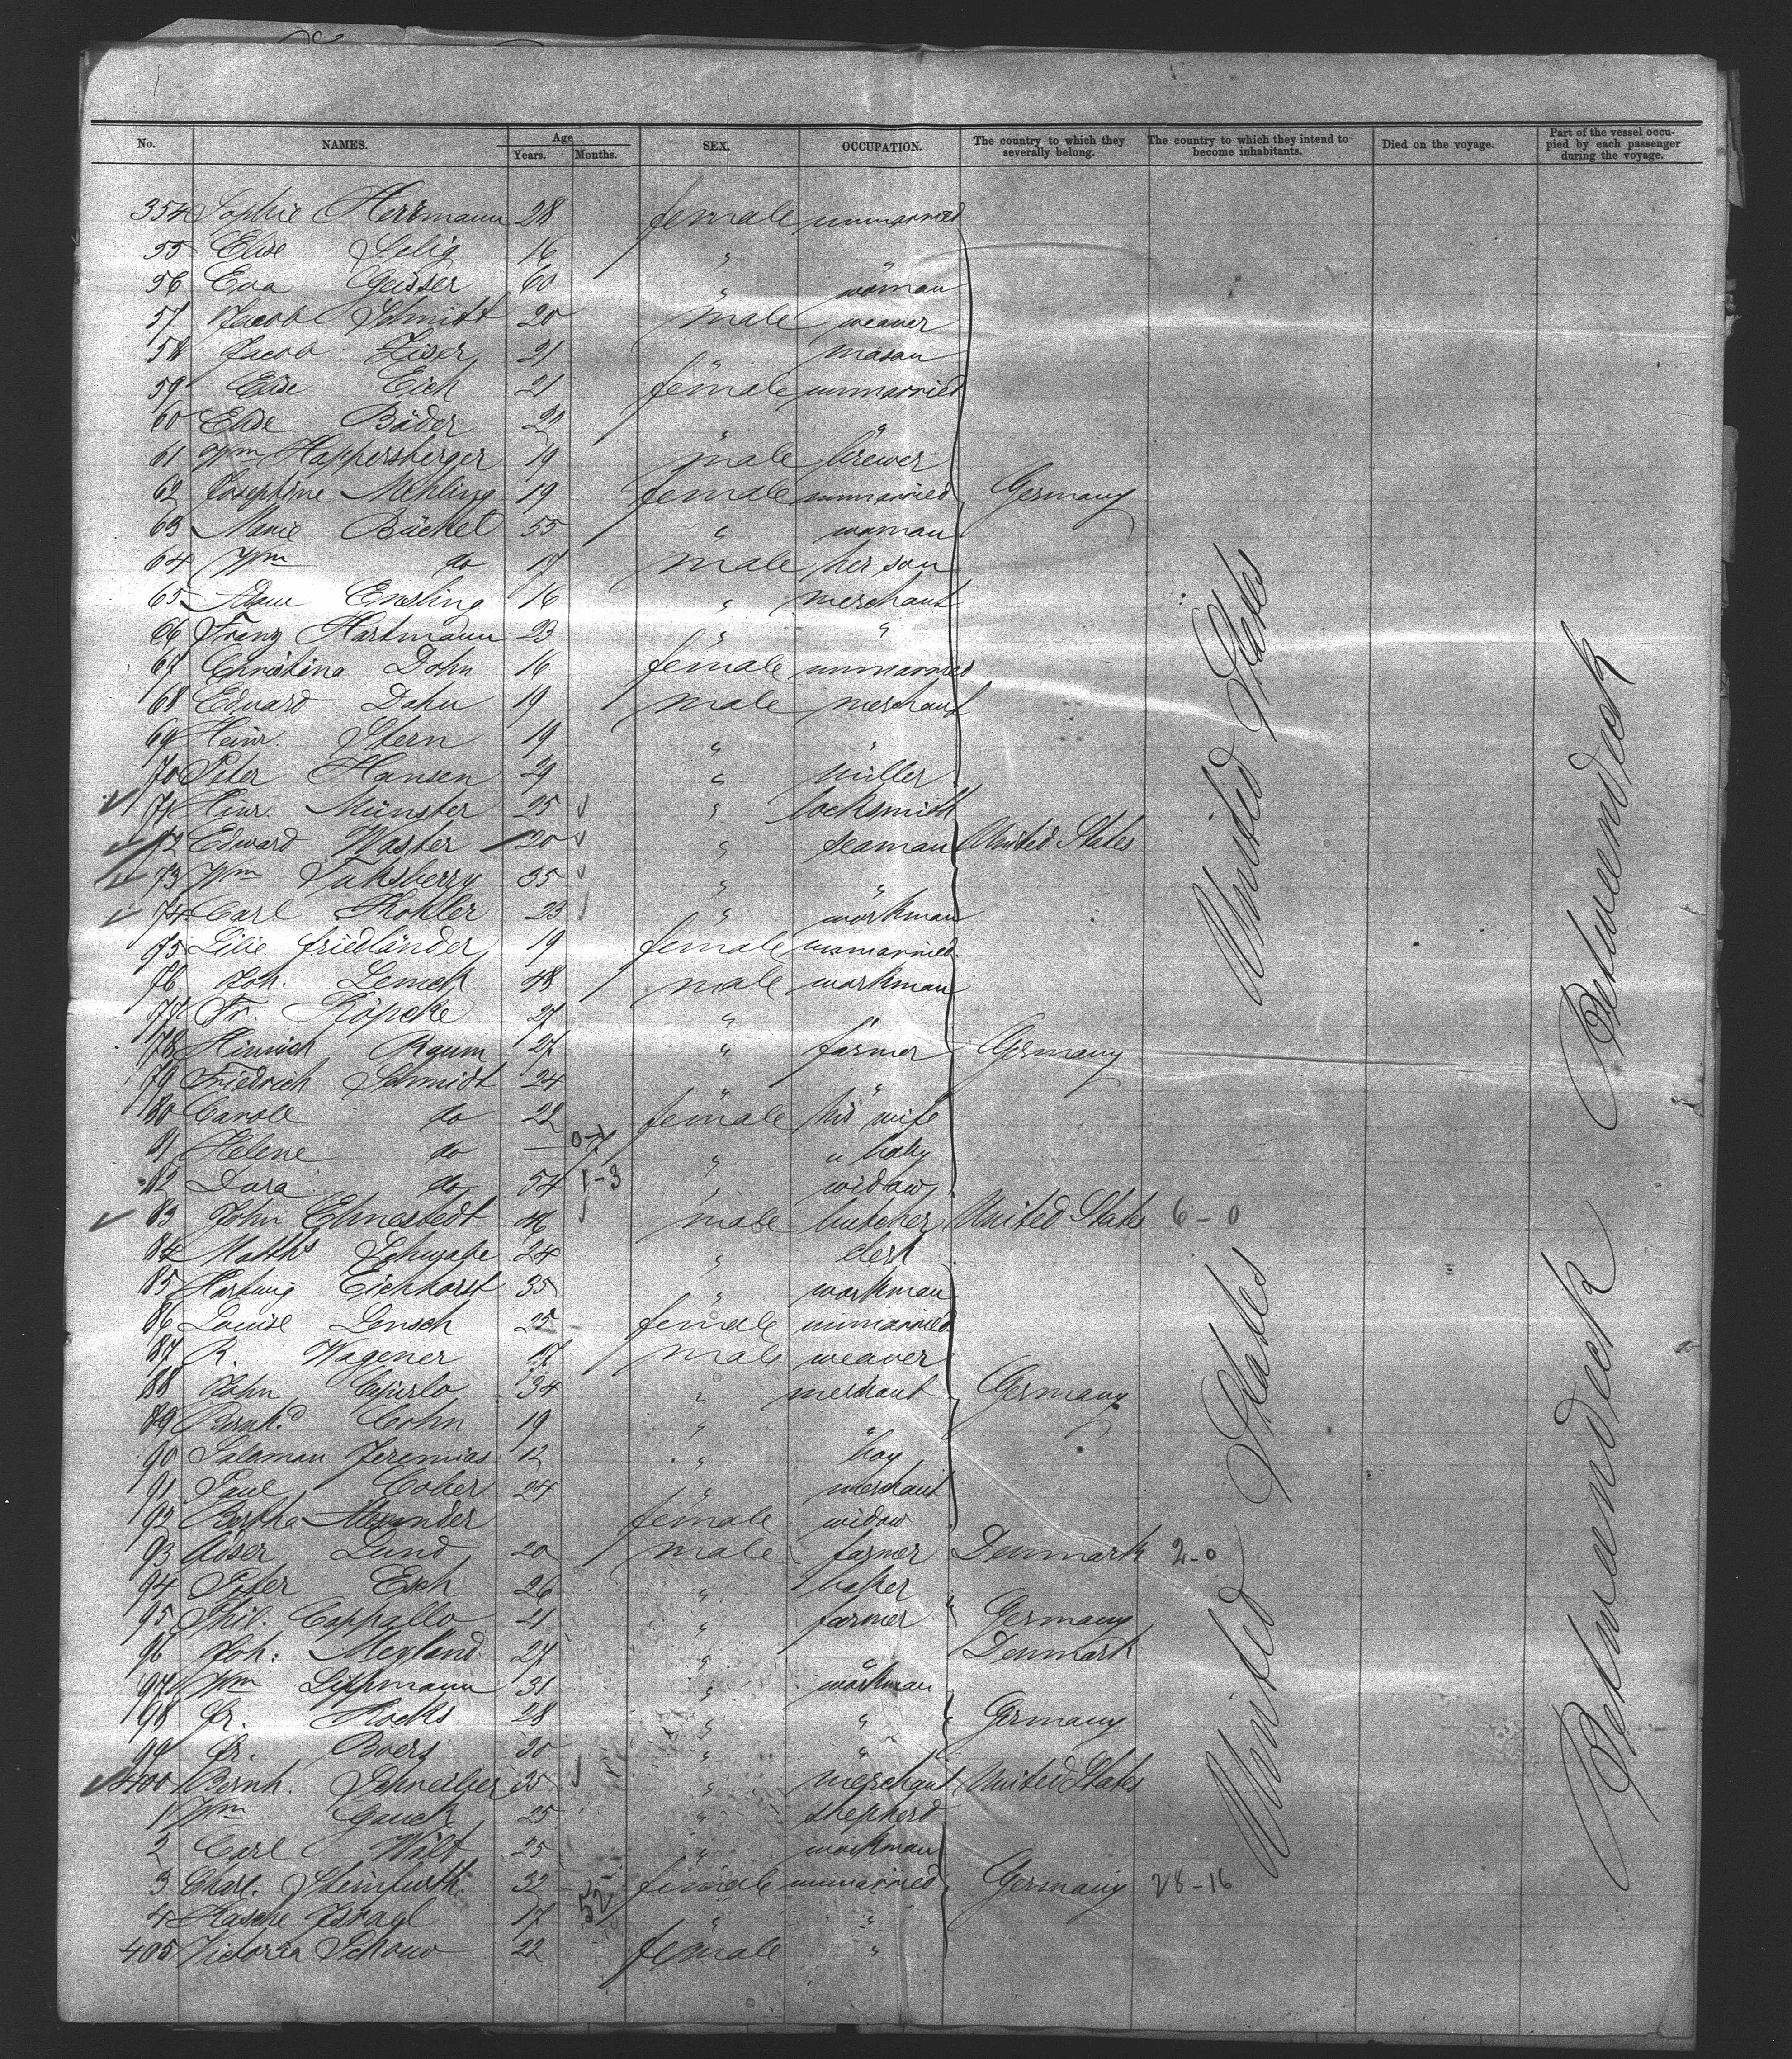 No. NAMES. Age Years. Months. SEX. OCCUPATION. The country to which they severally belong. The country to which they intend to become inhabitants. Died on the voyage. Part of the vessel occupied by each passenger during the voyage.
354 Sophie Herrmann 28 female unmarried
55 Elise Selig 16 " "
56 Eva Geisser 60 " woman
57 Jacob Schmitt 20 male weaver
58 Jacob Ziser 21 " mason
59 Elise Eich 21 female unmarried
60 Elise Bäder 22 " "
61 Wm Happersberger 19 male brewer
62 Josephine Mehling 19 female unmarried Germany
63 Marie Büchel 55 " woman
64 Wm do 17 male her son
65 Adam Ensling 16 " merchant
66 Franz Hartmann 23 " "
67 Christina Dohn 16 female unmarried
68 Eduard Dahn 19 male merchant
69 Heinr. Stern 19 " "
70 Peter Hansen 29 " miller
71 Hinr. Münster 25 " locksmith
72 Edward Waster 20 " seaman United States
73 Wm 35 " "
74 Carl Kohler 23 " workman
75 Lilie Friedländer 19 female unmarried
76 Joh. Lemck 48 male workman
77 Fr. Röpcke 27 " "
78 Hinrich Raum 27 " farmer Germany
79 Friedrich Schmidt 24 " "
80 Carole do 22 female his wife
81 Helene do — " " baby
82 Dora do 54 1-3 " widow
83 John Ehnestedt 46 male butcher United States 6-0
84 Matths Schwabe 24 " clerk
85 Hartwig Eichhorst 35 " workman
86 Louise Lensch 25 female unmarried
87 R. Wagener 17 male weaver
88 John Cejurlo 34 " merchant Germany
89 Bernhd Cohn 19 " "
90 Salaman Jeremias 12 " boy
91 Paul Cober 24 " merchant
92 Bertha Alexander female widow
93 Adser Lund 20 male farmer Denmark 2-0
94 Peter Esch 26 " baker "
95 Phil. Cappallo 21 " farmer Germany
96 Joh. Meyland 27 " " Denmark
97 Wm Lippmann 31 " workman
98 Fr. Rocks 28 " " Germany
99 Fr. Boers 30 " "
400 Bernh. Schneider 35 " merchant United States
1 Wm Gauck 25 " shepherd
2 Carl Wält 25 " workman
3 Charl. Steinfurth 32 female unmarried Germany 28-16
4 Rasche Israel 17 " "
52
405 Victoria Schouw 22 female "
United States
United States
Betweendeck
Betweendeck